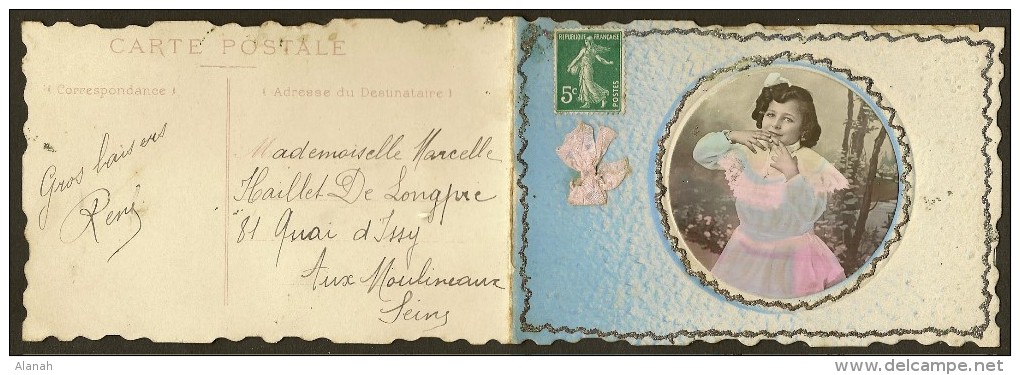 CARTE POSTALE
(Correspondance)
(Adresse du Destinataire)
Gros baisers
René
Mademoiselle Marcelle
Haillet De Longpre
81 Quai d'Issy
Aux Moulineaux
Seine
REPUBLIQUE FRANÇAISE
5c
POSTES
Alanah
www.delcampe.net